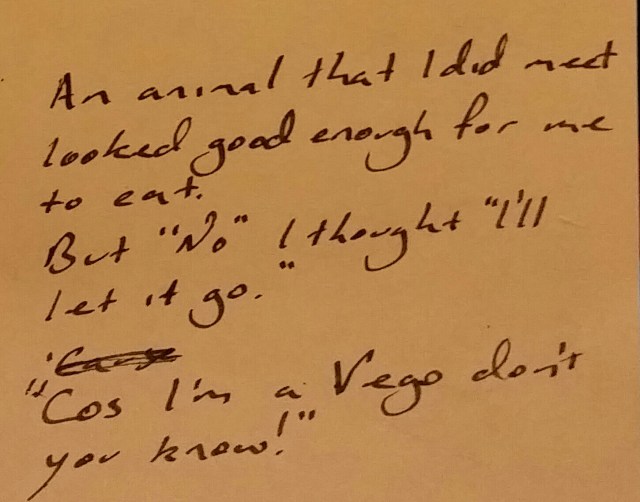 An animal that I did meet
looked good enough for me
to eat.
But "No" I thought "I'll
let it go."
'Cause
"Cos I'm a Vego don't
you know!"